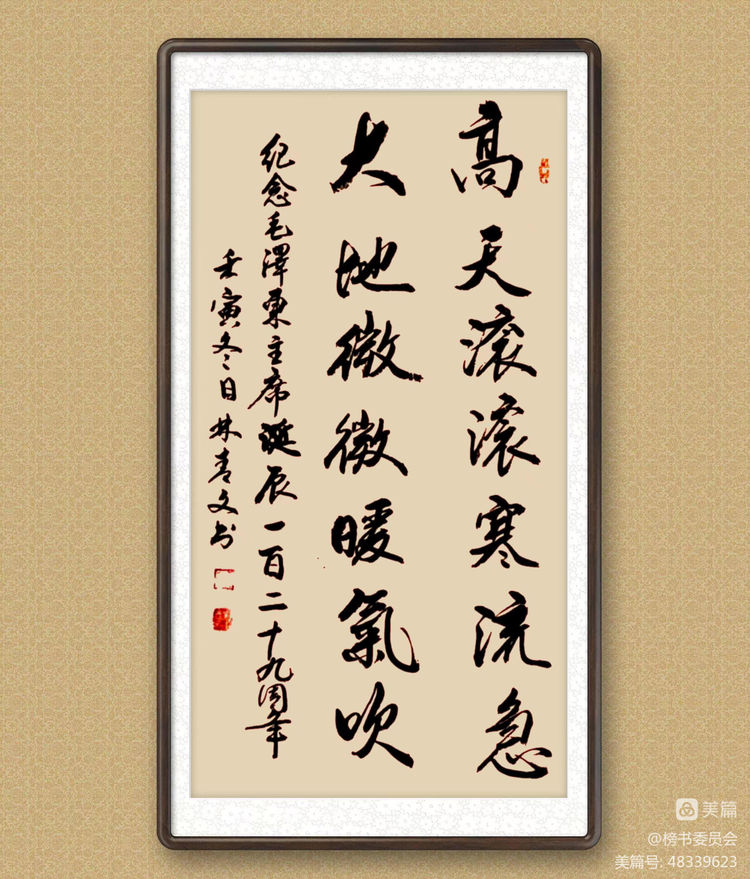 高天滚滚寒流急
大地微微暖氣吹
纪念毛澤东主席诞辰一百二十九周年
壬寅冬日林青文书
美篇
@榜书委员会
美篇号: 48339623